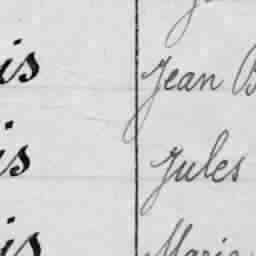 is Jean
is Jules
is Marie